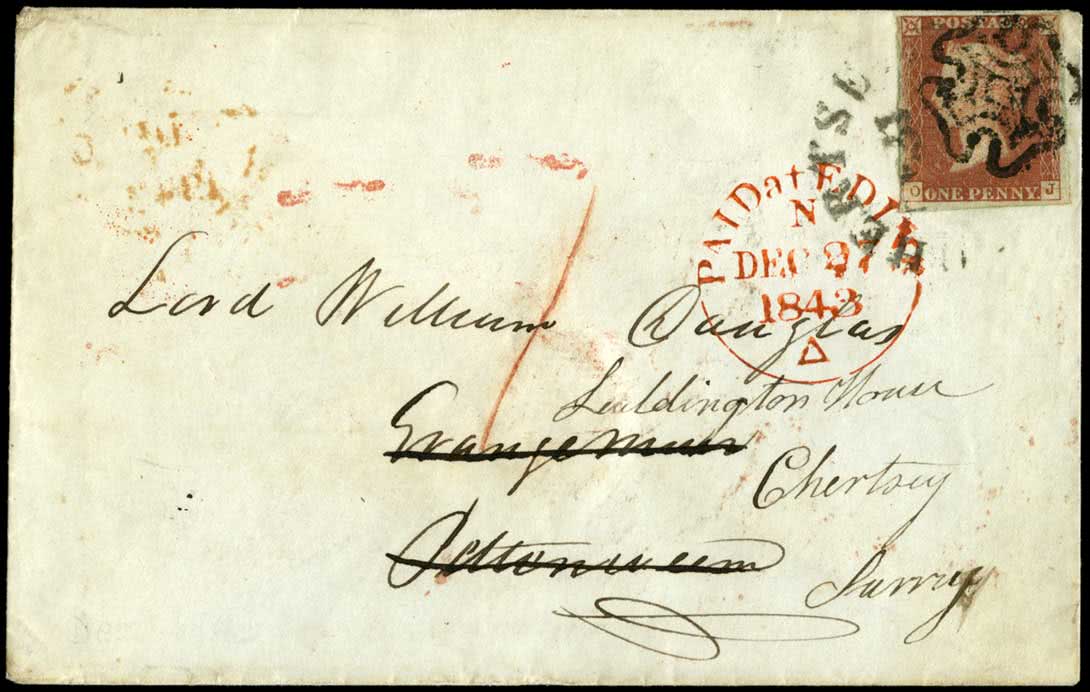 POSTAGE
O ONE PENNY J
PAID at EDIN
N
DEC 27
1843
Lord William Douglas
Luddington House
Grangemuir
Chertsey
Pittenweem
Surrey